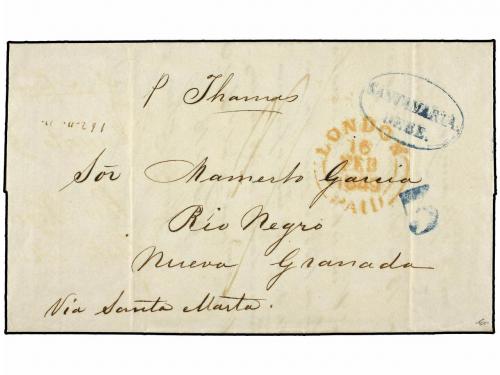 P Thames
SANTAMARTA
DEBE.
LONDON
16
FEB
1849
PAID
Sör Mamerto Garcia
Rio Negro
Nueva Granada
Via Santa Marta.